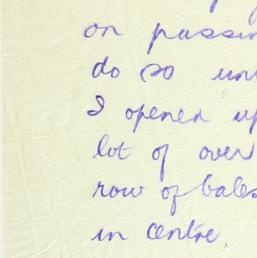 on passin
do so un
I opened up
lot of over
row of bales
in centre.